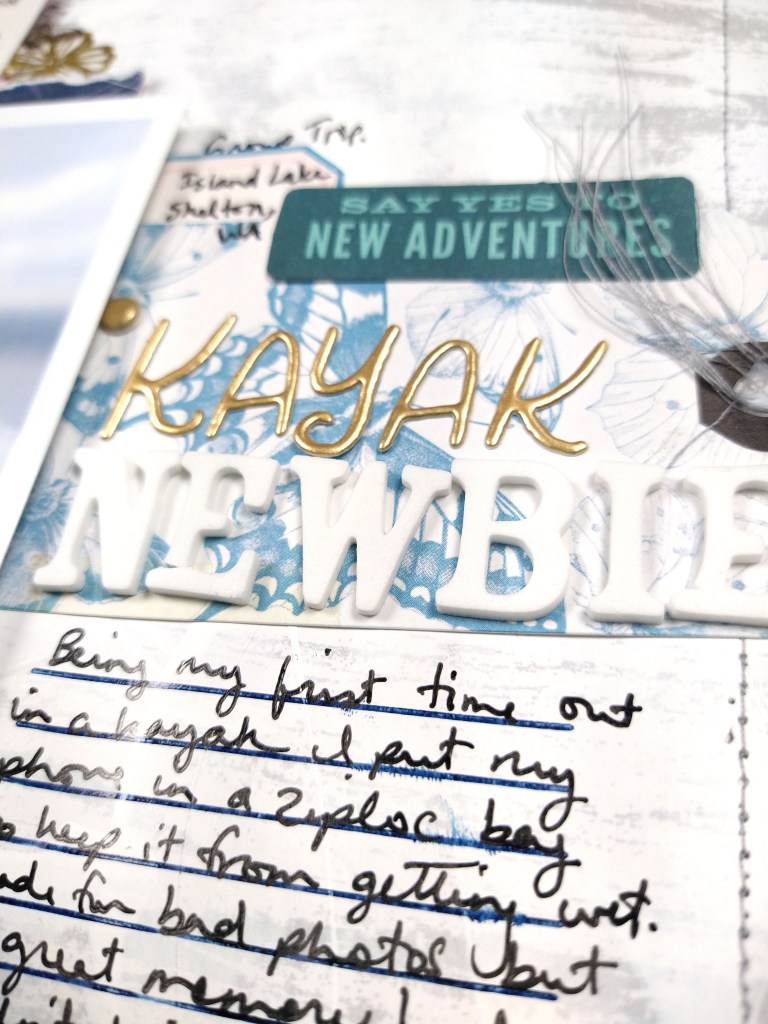 Group Trip.
Island Lake
Shelton,
WA
SAY YES TO
NEW ADVENTURES
KAYAK
NEWBIE
Being my first time out
in a kayak I put my
phone in a Ziploc bag
to keep it from getting wet.
made for bad photos but
great memory!